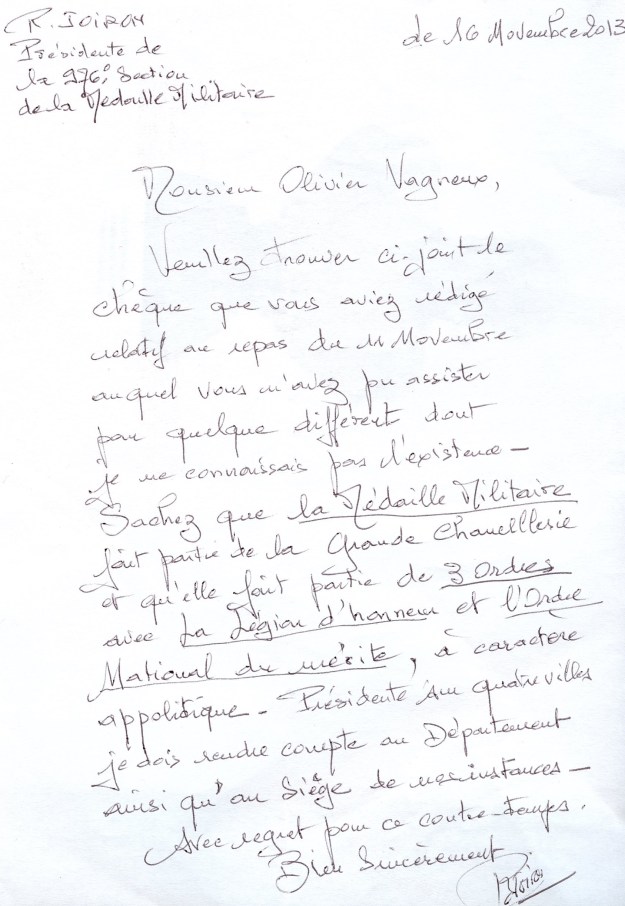 R. JOIRON
Présidente de
la 976° Section
de la Médaille Militaire
de 16 Novembre 2013
Monsieur Olivier Vagneux,
Veuillez trouver ci-joint le
chèque que vous aviez rédigé
relatif au repas du 11 Novembre
auquel vous n'avez pu assister
par quelque différent dont
je ne connaissais pas l'existence -
Sachez que la Médaille Militaire
fait partie de la Grande Chancellerie
et qu'elle fait partie de 3 Ordres
avec La Légion d'honneur et l'Ordre
National du mérite, à caractère
appolitique - Présidente sur quatre villes
je dois rendre compte au Département
ainsi qu'au Siège de nos instances -
Avec regret pour ce contre-temps.
Bien Sincèrement
RJoiron